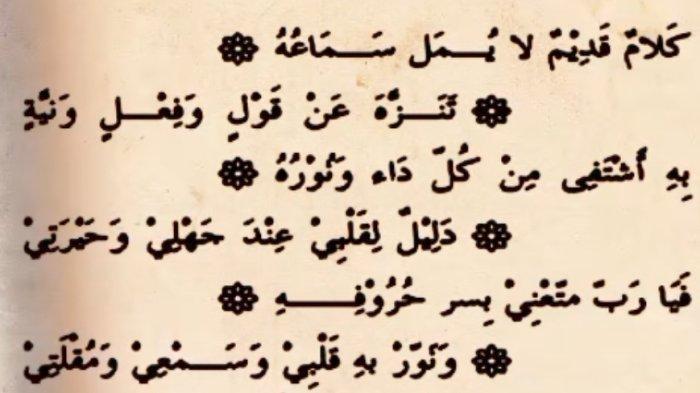 كَلامٌ قَدِيْمٌ لا يُـــمَل سَـــمَاعُهُ
تَنَـــزَّهَ عَنْ قَوْلٍ وَفِعْـــلٍ وَنيَّةٍ
بِهِ أَشْتَفِى مِنْ كُلّ دَاء وَنُوْرُهُ
دَلِيْلٌ لِقَلْبِيْ عِنْدَ جَهْلِيْ وَحَيْرَتِيْ
فَيَا رَبّ متّعْنِيْ بِسر حُرُوْفِـــــهِ
وَنَوّرْ بهِ قَلْبِيْ وَسَـــمْعِيْ وَمُقْلَتِيْ